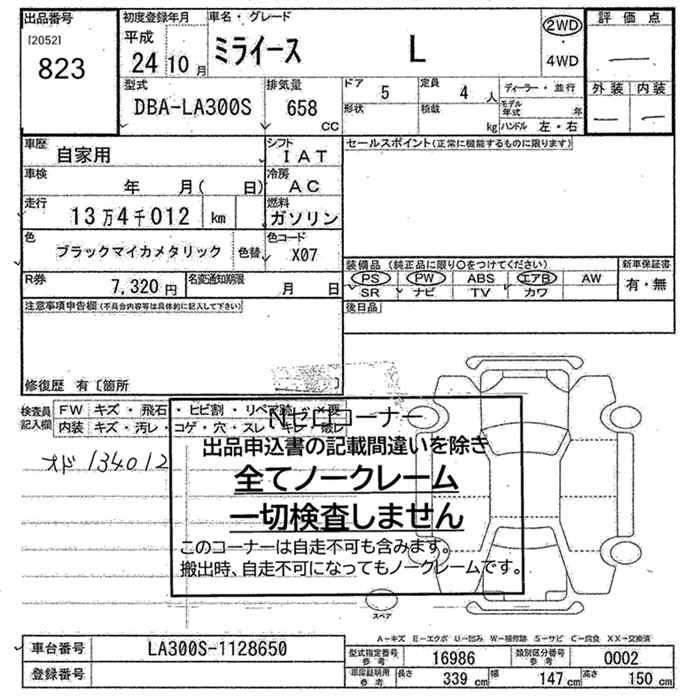 出品番号 初度登録年月 車名・グレード 評価点
[2052] 平成 ミライース L 2WD
823 24 10月 ・4WD
型式 排気量 ドア 5 定員 4人 ディーラー・並行 外装 内装
DBA-LA300S 658 cc 形状 積載 kg モデル年式 年
ハンドル 左・右
車歴 自家用 シフト IAT セールスポイント(正常に機能するものに限ります)
車検 年 月( 日) 冷房 AC
走行 13万4千012 km 燃料 ガソリン
色 ブラックマイカメタリック 色替 色コード X07
装備品 (純正品に限り○をつけてください) 新車保証書
R券 7,320円 名変通知期限 月 日 PS PW ABS エアB AW 有・無
SR ナビ TV カワ
注意事項申告欄(不具合内容等は具体的に記入して下さい) 後日品
修復歴 有〔箇所 〕
検査員記入欄 FW キズ・飛石・ヒビ割・リペア跡・×要
内装 キズ・汚レ・コゲ・穴・スレ・キレ・破レ
オド 134012
Nゼロコーナー
出品申込書の記載間違いを除き
全てノークレーム
一切検査しません
このコーナーは自走不可も含みます。
搬出時、自走不可になってもノークレームです。
スペア
A-キズ E-エクボ U-凹み W-補修跡 S-サビ C-腐食 XX-交換済
車台番号 LA300S-1128650 型式指定番号 参考 16986 類別区分番号 参考 0002
登録番号 車庫証明用 参考 長さ 339cm 幅 147cm 高さ 150cm